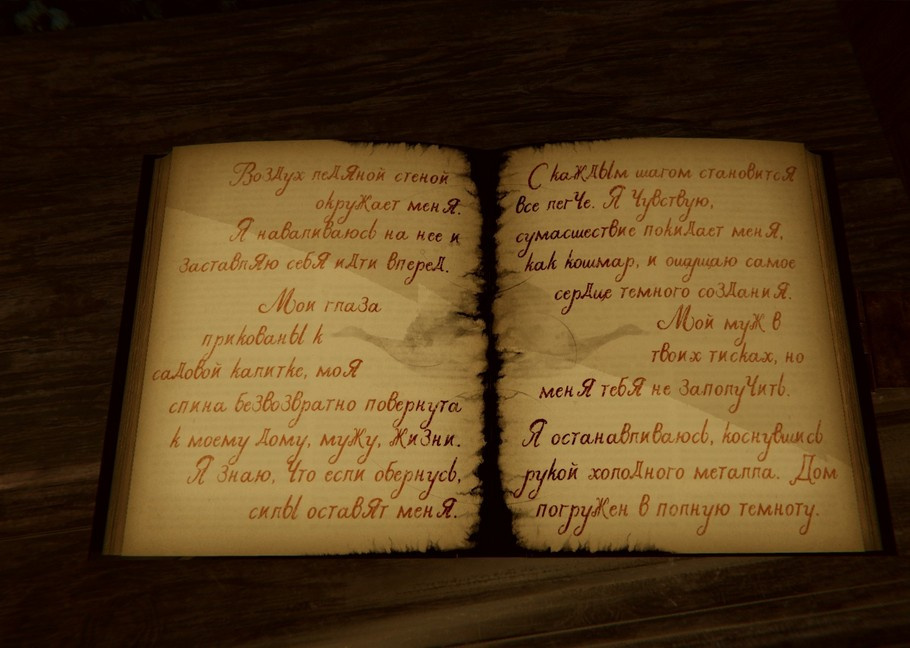 Воздух ледяной стеной
окружает меня.
Я наваливаюсь на нее и
заставляю себя идти вперед.
Мои глаза
прикованы к
садовой калитке, моя
спина безвозвратно повернута
к моему дому, мужу, жизни.
Я знаю, что если обернусь,
силы оставят меня.
С каждым шагом становится
все легче. Я чувствую,
сумасшествие покидает меня,
как кошмар, и ощущаю самое
сердце темного создания.
Мой муж в
твоих тисках, но
меня тебе не заполучить.
Я останавливаюсь, коснувшись
рукой холодного металла. Дом
погружен в полную темноту.